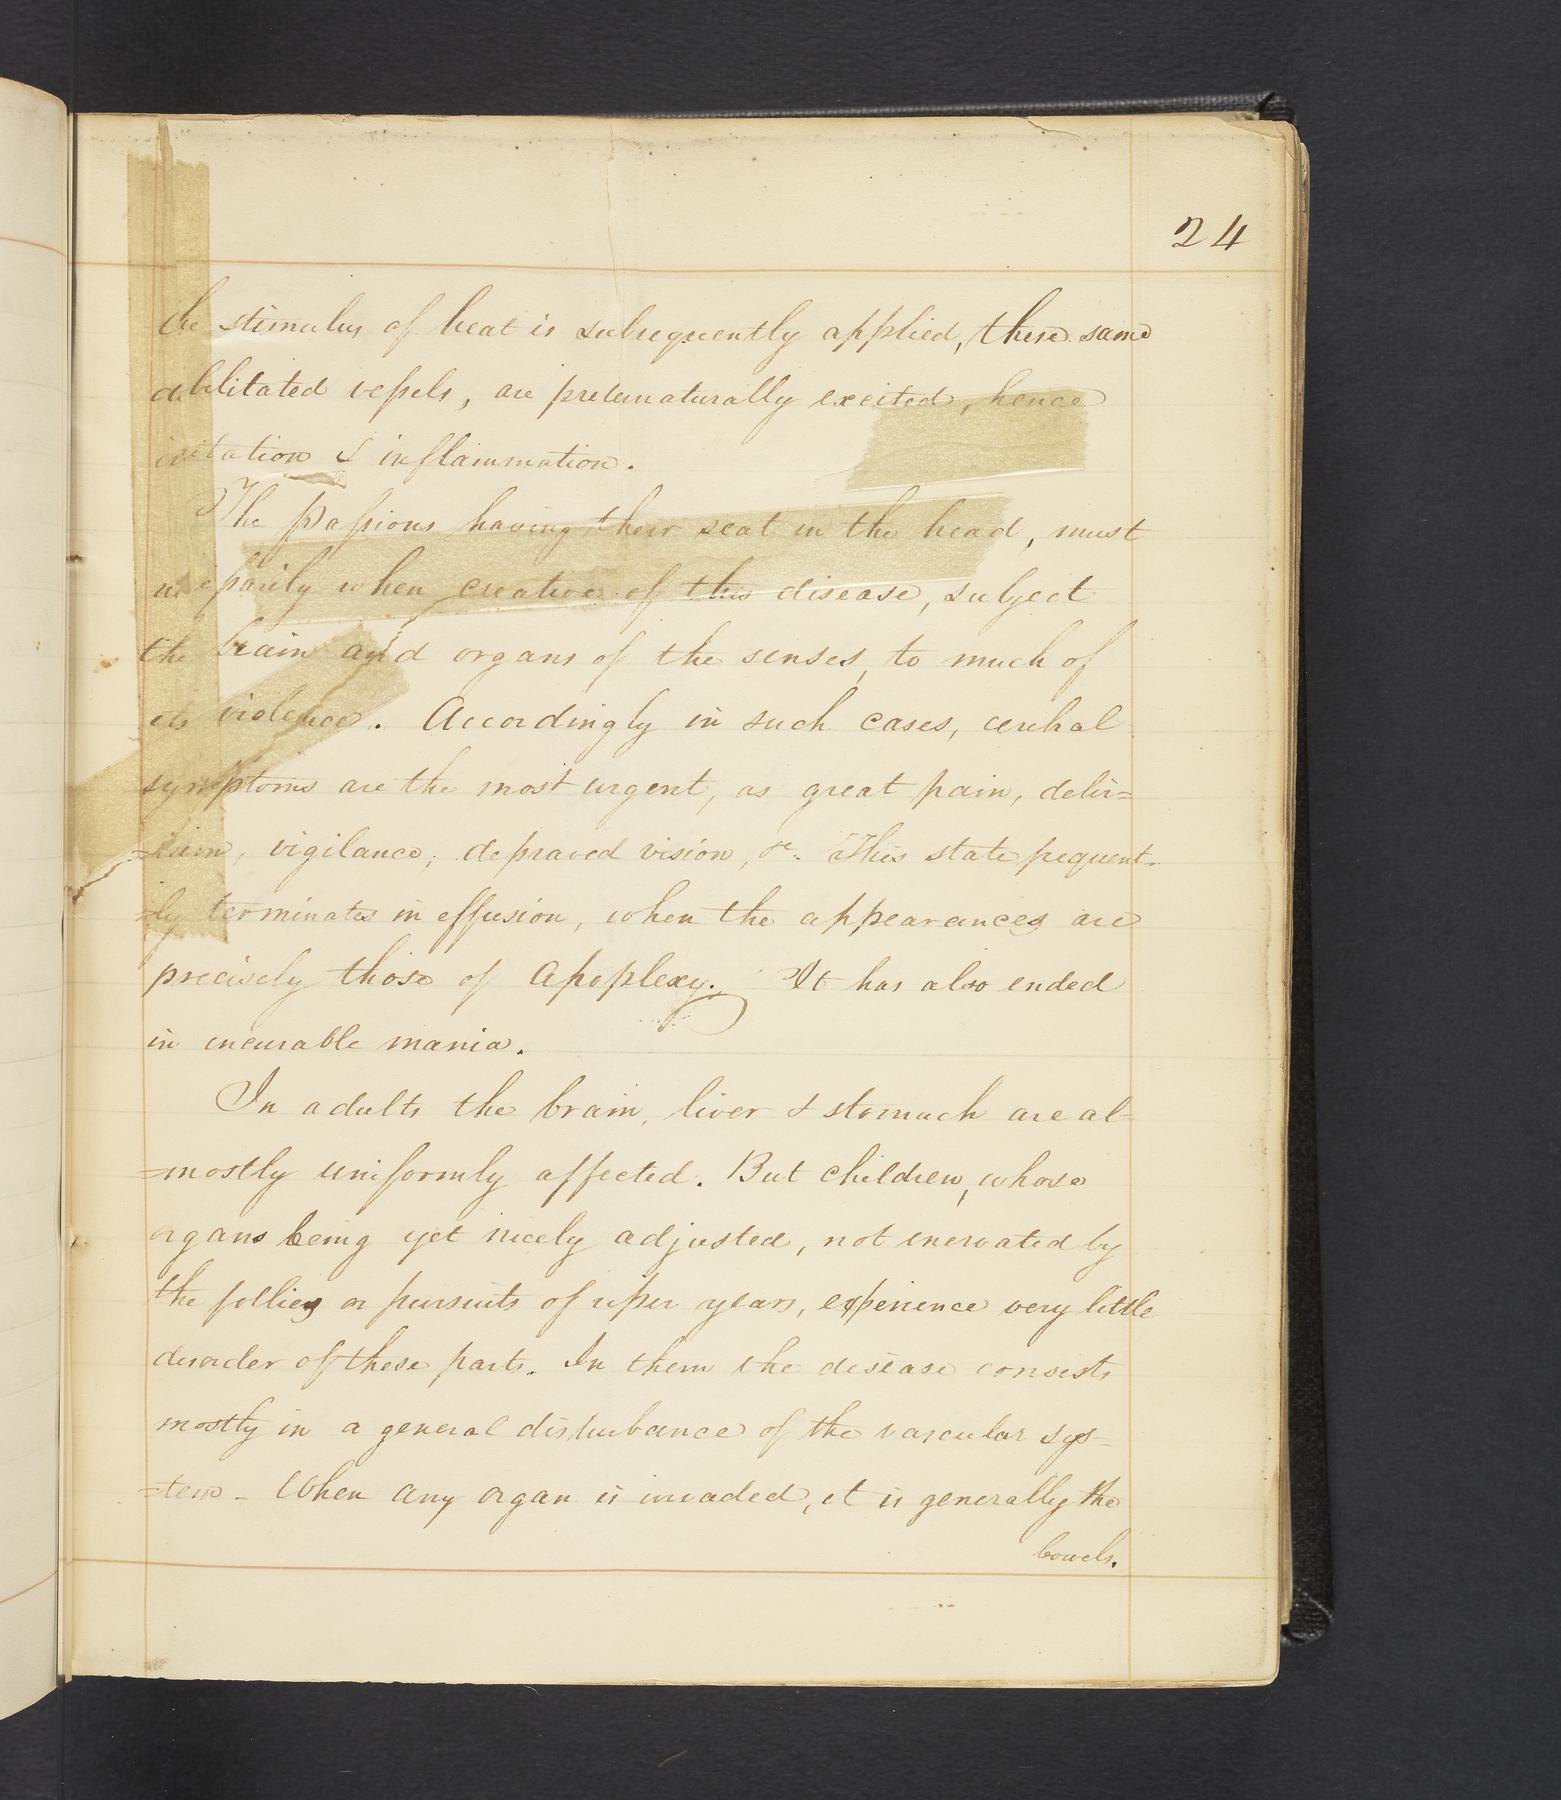 24
the stimulus of heat is subsequently applied, these same
debilitated vessels, are preternaturally excited, hence
irritation & inflammation.
The passions having their seat in the head, must
necessarily when creative of this disease, subject
the brain and organs of the senses, to much of
its violence. Accordingly in such cases, cerebral
symptoms are the most urgent, as great pain, delir=
=ium, vigilance, depraved vision, &c. This state frequent-
=ly terminates in effusion, when the appearances are
precisely those of Apoplexy. It has also ended
in incurable mania.
In adults the brain, liver & stomach are al-
=mostly uniformly affected. But children, whose
organs being yet nicely adjusted, not enervated by
the follies or pursuits of riper years, experience very little
disorder of these parts. In them the disease consists
mostly in a general disturbance of the vascular sys-
=tem - When any organ is invaded, it is generally the
bowels.